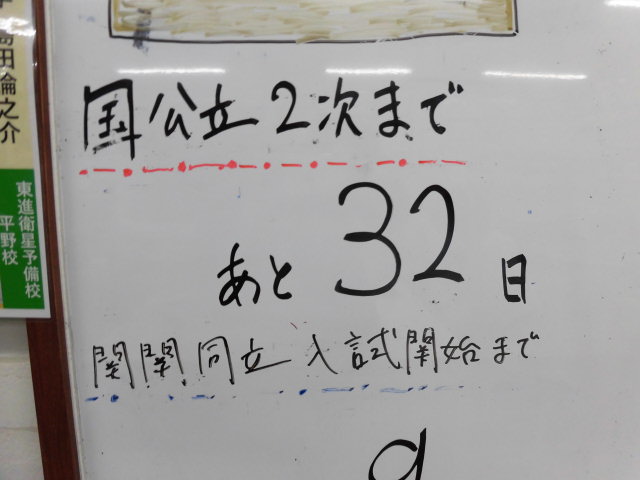 国公立2次まで
あと 32 日
関関同立入試開始まで
9
島田倫之介
東進衛星予備校
平野校